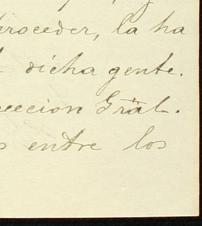 proceder, la ha
dicha gente.
eccion Grāl.
s entre los